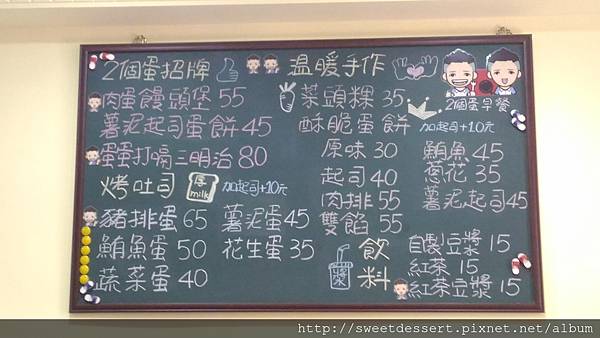 2個蛋招牌
肉蛋饅頭堡 55
薯泥起司蛋餅 45
蛋蛋打嗝三明治 80
烤吐司 厚 milk 加起司+10元
豬排蛋 65 薯泥蛋 45
鮪魚蛋 50 花生蛋 35
蔬菜蛋 40
溫暖手作
菜頭粿 35
酥脆蛋餅 加起司+10元
原味 30 鮪魚 45
起司 40 蔥花 35
肉排 55 薯泥起司 45
雙餡 55
2個蛋早餐
飲料
自製豆漿 15
紅茶 15
紅茶豆漿 15
漿
http://sweetdessert.pixnet.net/album